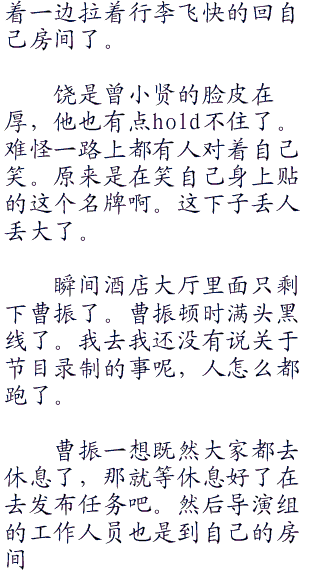 着一边拉着行李飞快的回自
己房间了。
饶是曾小贤的脸皮在
厚，他也有点hold不住了。
难怪一路上都有人对着自己
笑。原来是在笑自己身上贴
的这个名牌啊。这下子丢人
丢大了。
瞬间酒店大厅里面只剩
下曹振了。曹振顿时满头黑
线了。我去我还没有说关于
节目录制的事呢，人怎么都
跑了。
曹振一想既然大家都去
休息了，那就等休息好了在
去发布任务吧。然后导演组
的工作人员也是到自己的房
间